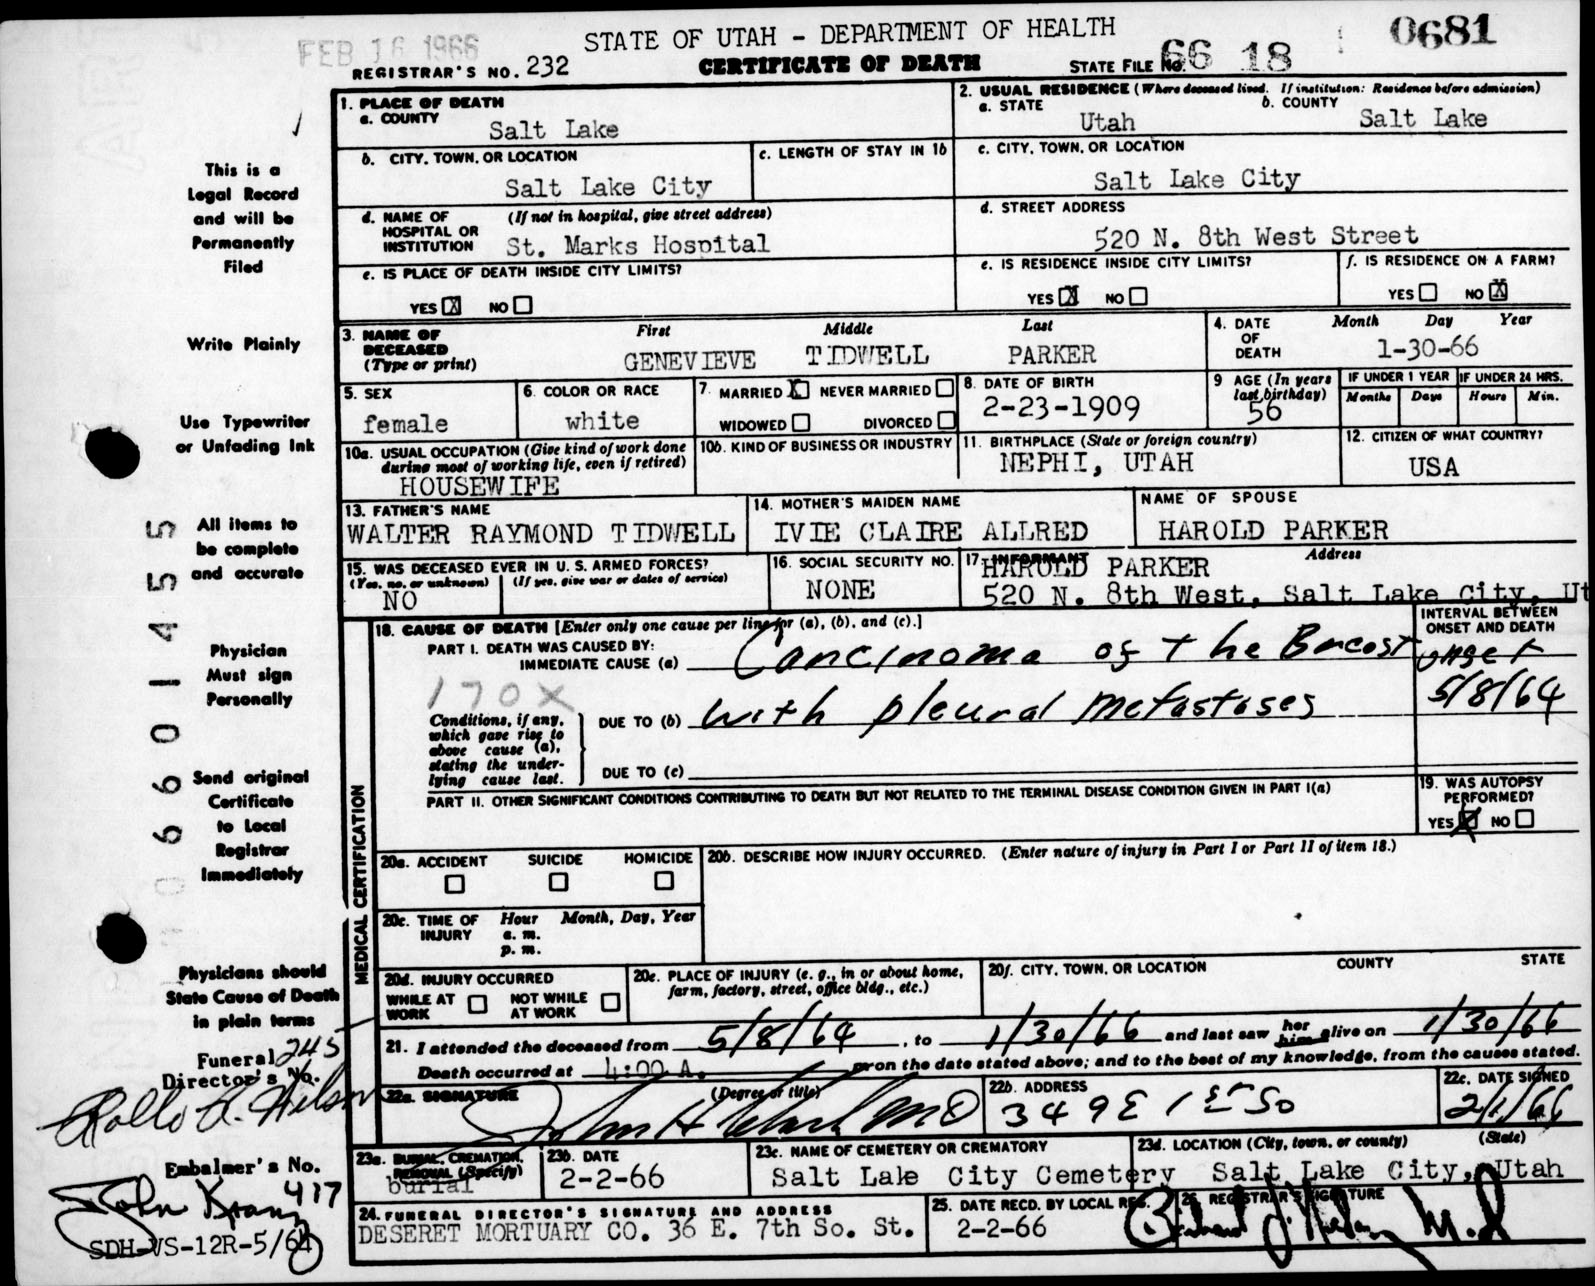 FEB 16 1966
STATE OF UTAH - DEPARTMENT OF HEALTH
0681
REGISTRAR'S NO. 232
CERTIFICATE OF DEATH
STATE FILE NO. 66 18
1. PLACE OF DEATH
a. COUNTY
Salt Lake
2. USUAL RESIDENCE (Where deceased lived. If institution: Residence before admission)
a. STATE
Utah
b. COUNTY
Salt Lake
b. CITY, TOWN, OR LOCATION
Salt Lake City
c. LENGTH OF STAY IN 1b
c. CITY, TOWN, OR LOCATION
Salt Lake City
d. NAME OF HOSPITAL OR INSTITUTION
(If not in hospital, give street address)
St. Marks Hospital
d. STREET ADDRESS
520 N. 8th West Street
e. IS PLACE OF DEATH INSIDE CITY LIMITS?
YES X NO
e. IS RESIDENCE INSIDE CITY LIMITS?
YES X NO
f. IS RESIDENCE ON A FARM?
YES NO X
3. NAME OF DECEASED (Type or print)
First Middle Last
GENEVIEVE TIDWELL PARKER
4. DATE OF DEATH
Month Day Year
1-30-66
5. SEX
female
6. COLOR OR RACE
white
7. MARRIED X NEVER MARRIED
WIDOWED DIVORCED
8. DATE OF BIRTH
2-23-1909
9 AGE (In years last birthday)
56
IF UNDER 1 YEAR
Months Days
IF UNDER 24 HRS.
Hours Min.
10a. USUAL OCCUPATION (Give kind of work done during most of working life, even if retired)
HOUSEWIFE
10b. KIND OF BUSINESS OR INDUSTRY
11. BIRTHPLACE (State or foreign country)
NEPHI, UTAH
12. CITIZEN OF WHAT COUNTRY?
USA
13. FATHER'S NAME
WALTER RAYMOND TIDWELL
14. MOTHER'S MAIDEN NAME
IVIE CLAIRE ALLRED
NAME OF SPOUSE
HAROLD PARKER
15. WAS DECEASED EVER IN U. S. ARMED FORCES?
(Yes, no, or unknown) (If yes, give war or dates of service)
NO
16. SOCIAL SECURITY NO.
NONE
17 INFORMANT Address
HAROLD PARKER
520 N. 8th West, Salt Lake City, Ut
MEDICAL CERTIFICATION
18. CAUSE OF DEATH [Enter only one cause per line for (a), (b), and (c).]
INTERVAL BETWEEN ONSET AND DEATH
PART I. DEATH WAS CAUSED BY:
IMMEDIATE CAUSE (a) Carcinoma of the Breast
onset
170X
5/8/64
Conditions, if any, which gave rise to above cause (a), stating the underlying cause last.
DUE TO (b) with pleural metastases
DUE TO (c)
PART II. OTHER SIGNIFICANT CONDITIONS CONTRIBUTING TO DEATH BUT NOT RELATED TO THE TERMINAL DISEASE CONDITION GIVEN IN PART I(a)
19. WAS AUTOPSY PERFORMED?
YES X NO
20a. ACCIDENT SUICIDE HOMICIDE
20b. DESCRIBE HOW INJURY OCCURRED. (Enter nature of injury in Part I or Part II of item 18.)
20c. TIME OF INJURY
Hour Month, Day, Year
a. m.
p. m.
20d. INJURY OCCURRED
WHILE AT WORK NOT WHILE AT WORK
20e. PLACE OF INJURY (e. g., in or about home, farm, factory, street, office bldg., etc.)
20f. CITY, TOWN, OR LOCATION COUNTY STATE
21. I attended the deceased from 5/8/64, to 1/30/66 and last saw her him alive on 1/30/66
Death occurred at 4:00 A. m on the date stated above; and to the best of my knowledge, from the causes stated.
22a. SIGNATURE (Degree or title)
MD
22b. ADDRESS
349 E 1st So
22c. DATE SIGNED
2/1/66
23a. BURIAL, CREMATION, REMOVAL (Specify)
burial
23b. DATE
2-2-66
23c. NAME OF CEMETERY OR CREMATORY
Salt Lake City Cemetery
23d. LOCATION (City, town, or county) (State)
Salt Lake City, Utah
24. FUNERAL DIRECTOR'S SIGNATURE AND ADDRESS
DESERET MORTUARY CO. 36 E. 7th So. St.
25. DATE RECD. BY LOCAL REG.
2-2-66
26. REGISTRAR'S SIGNATURE
M.D
This is a
Legal Record
and will be
Permanently
Filed
Write Plainly
Use Typewriter
or Unfading Ink
All items to
be complete
and accurate
Physician
Must sign
Personally
Send original
Certificate
to Local
Registrar
Immediately
Physicians should
State Cause of Death
in plain terms
Funeral 245
Director's No.
Embalmer's No.
John 417
SDH-VS-12R-5/64